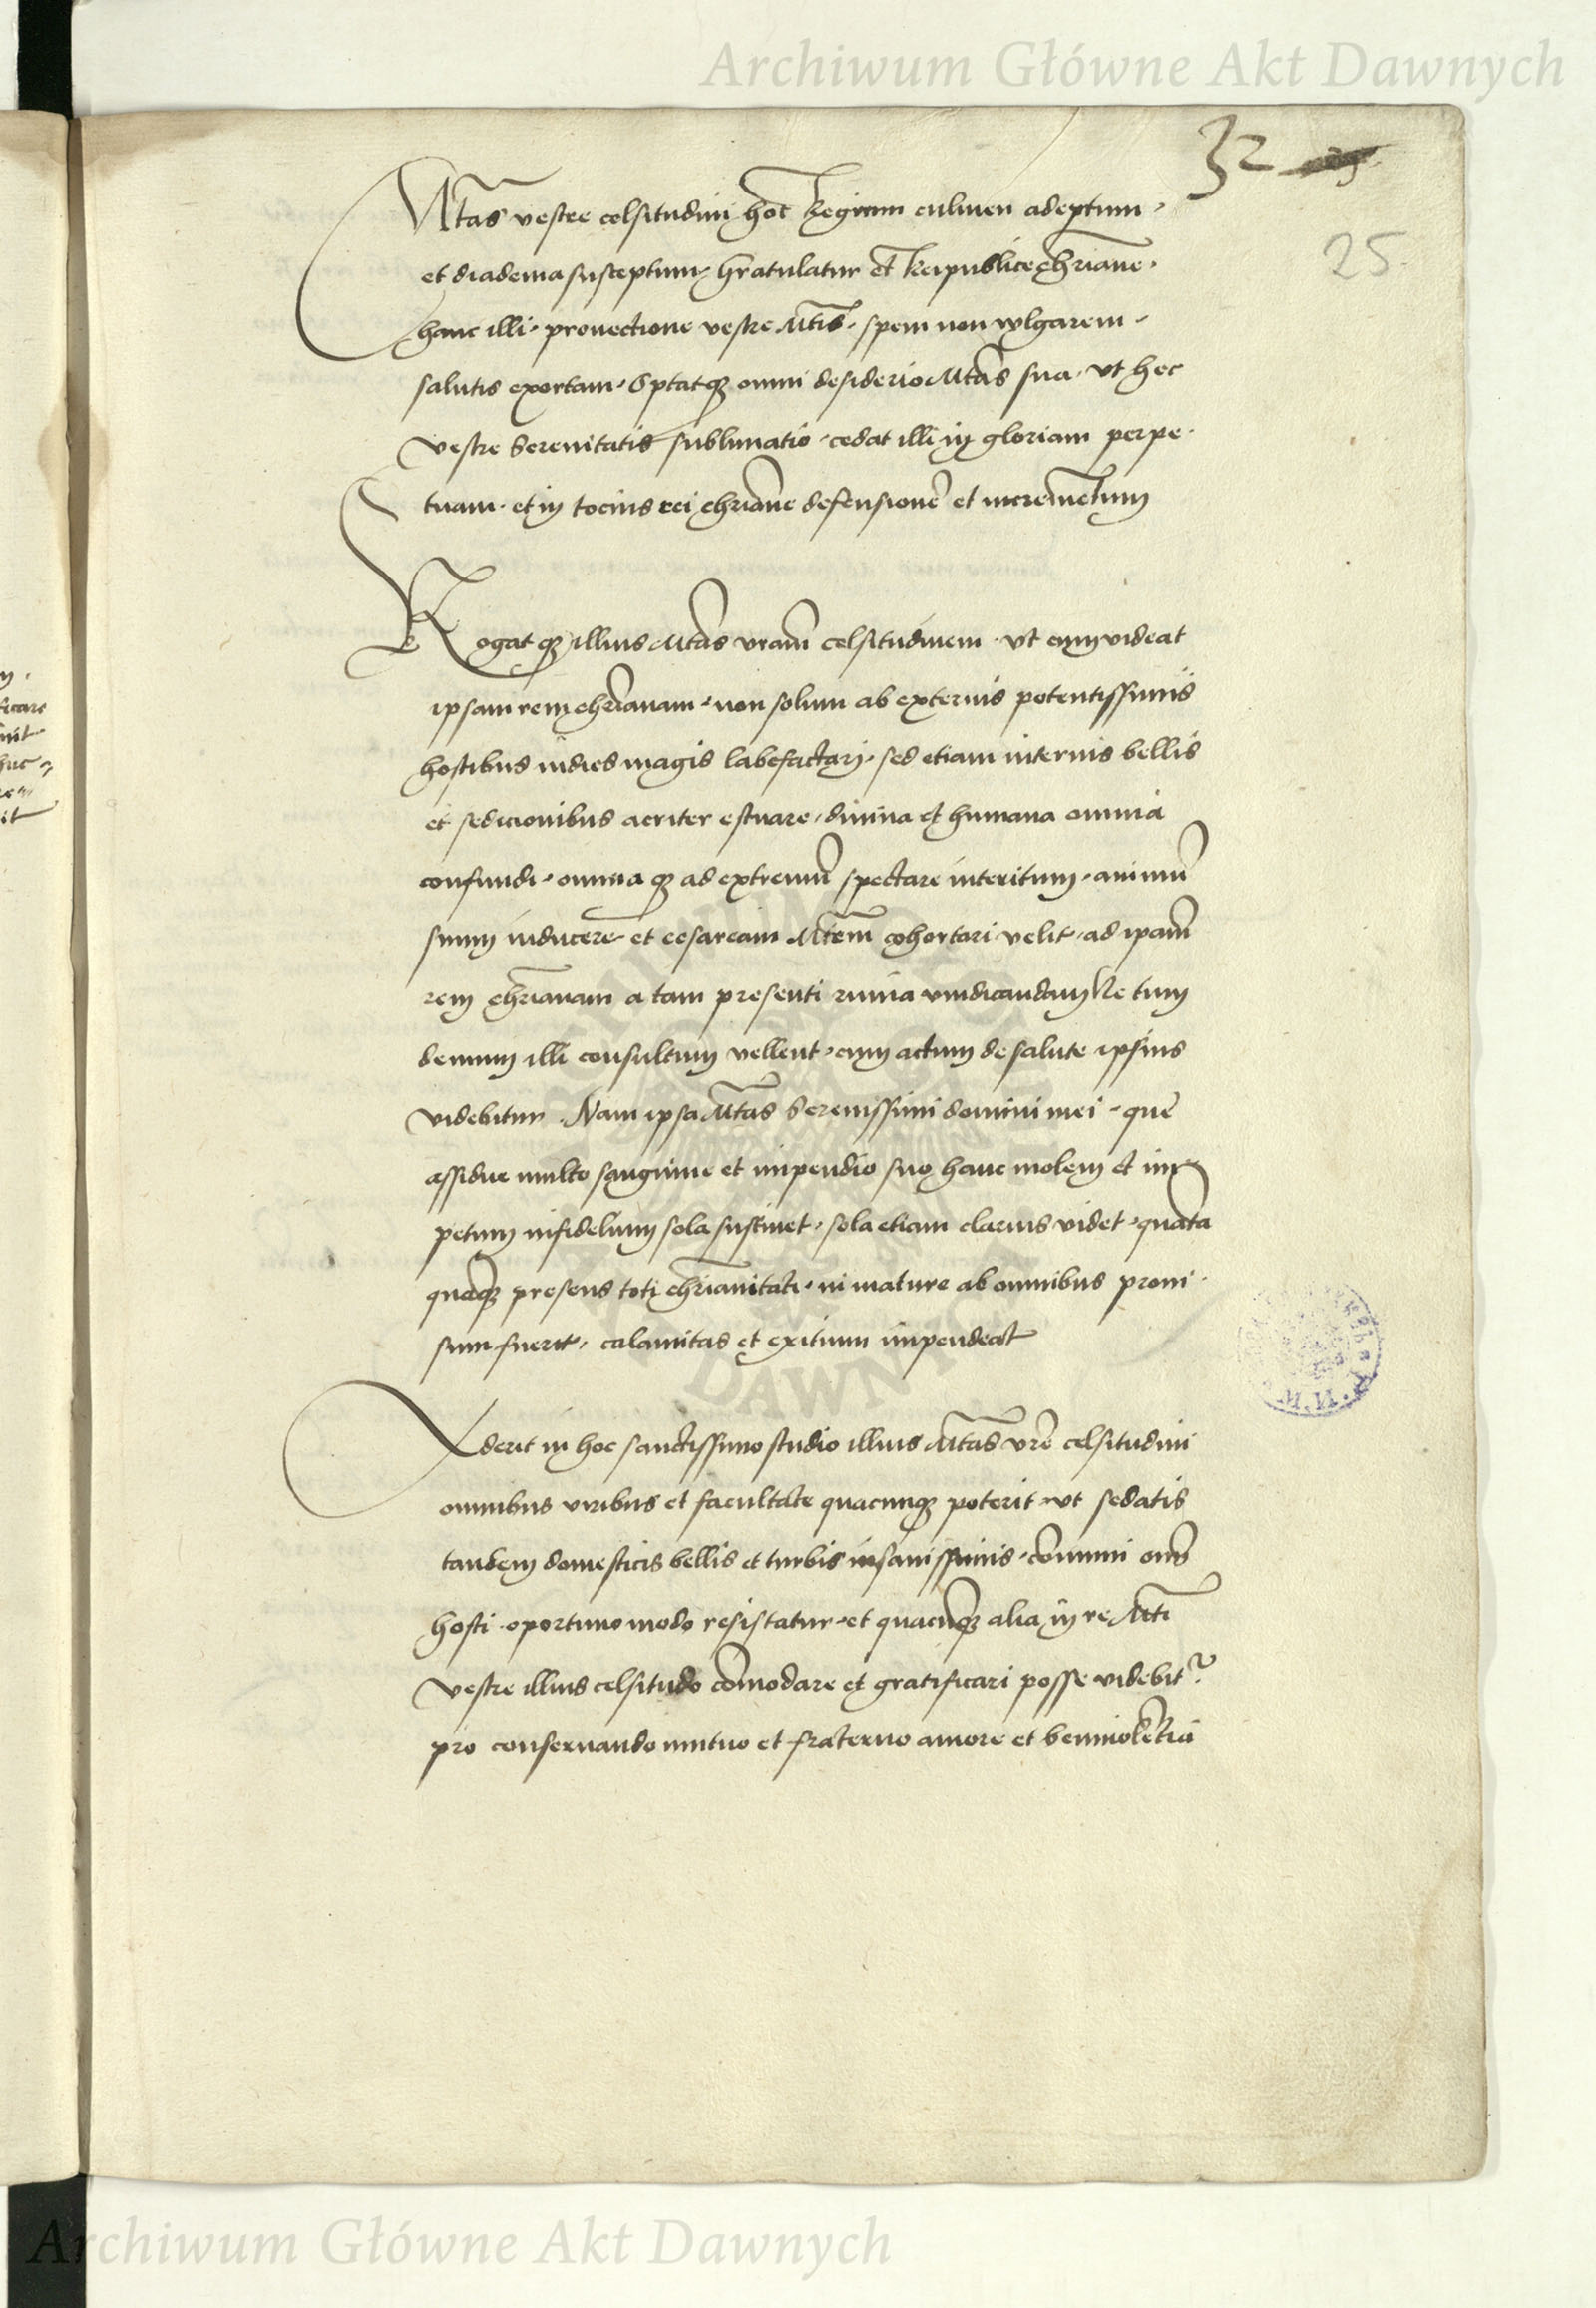 Archiwum Główne Akt Dawnych
32
25
Mtas vestre celsitudini hoc Regium culmen adeptum,
et diadema susceptum, Gratulatur et Reipublice chriane.
hanc illi, provectione vestre Mtis, spem non vulgarem,
salutis exortam, Optatq omni desiderio Mtas sua, Ut hec
vestre Serenitatis sublimatio, cedat illi in gloriam perpe-
tuam, et in tocius rei chriane defensione et incrementum
Rogatq illius Mtas vram celsitudinem, Ut cum videat
ipsam rem chrianam, non solum ab externis potentissimis
hostibus indies magis labefactari, sed etiam internis bellis
et sedicionibus acriter estuare, divina et humana omnia
confundi, omniaq ad extremu spectare interitum, animu
suum inducere et cesaream Mtem cohortari velit, ad ipam
rem chrianam a tam presenti ruina vindicandam Ne tum
demum illi consultum vellent, cum actum de salute ipsius
videbitur. Nam ipsa Mtas Serenissimi domini mei, que
assidue multo sanguine et impendio suo hanc molem et im-
petum infidelium sola sustinet, sola etiam clarius videt, quata
quaq presens toti chrianitati, ni mature ab omnibus provi-
sum fuerit, calamitas et exitium impendeat
Aderit in hoc sanctissimo studio illius Mtas vre celsitudini
omnibus viribus et facultate quacunq poterit, ut sedatis
tandem domesticis bellis et turbis insanissimis, comuni oim
hosti, oportuno modo resistatur, et quacuq alia in re Mti
vestre illius celsitudo comodare et gratificari posse videbitr
pro conservando mutuo et fraterno amore et benivolentia
Archiwum Główne Akt Dawnych